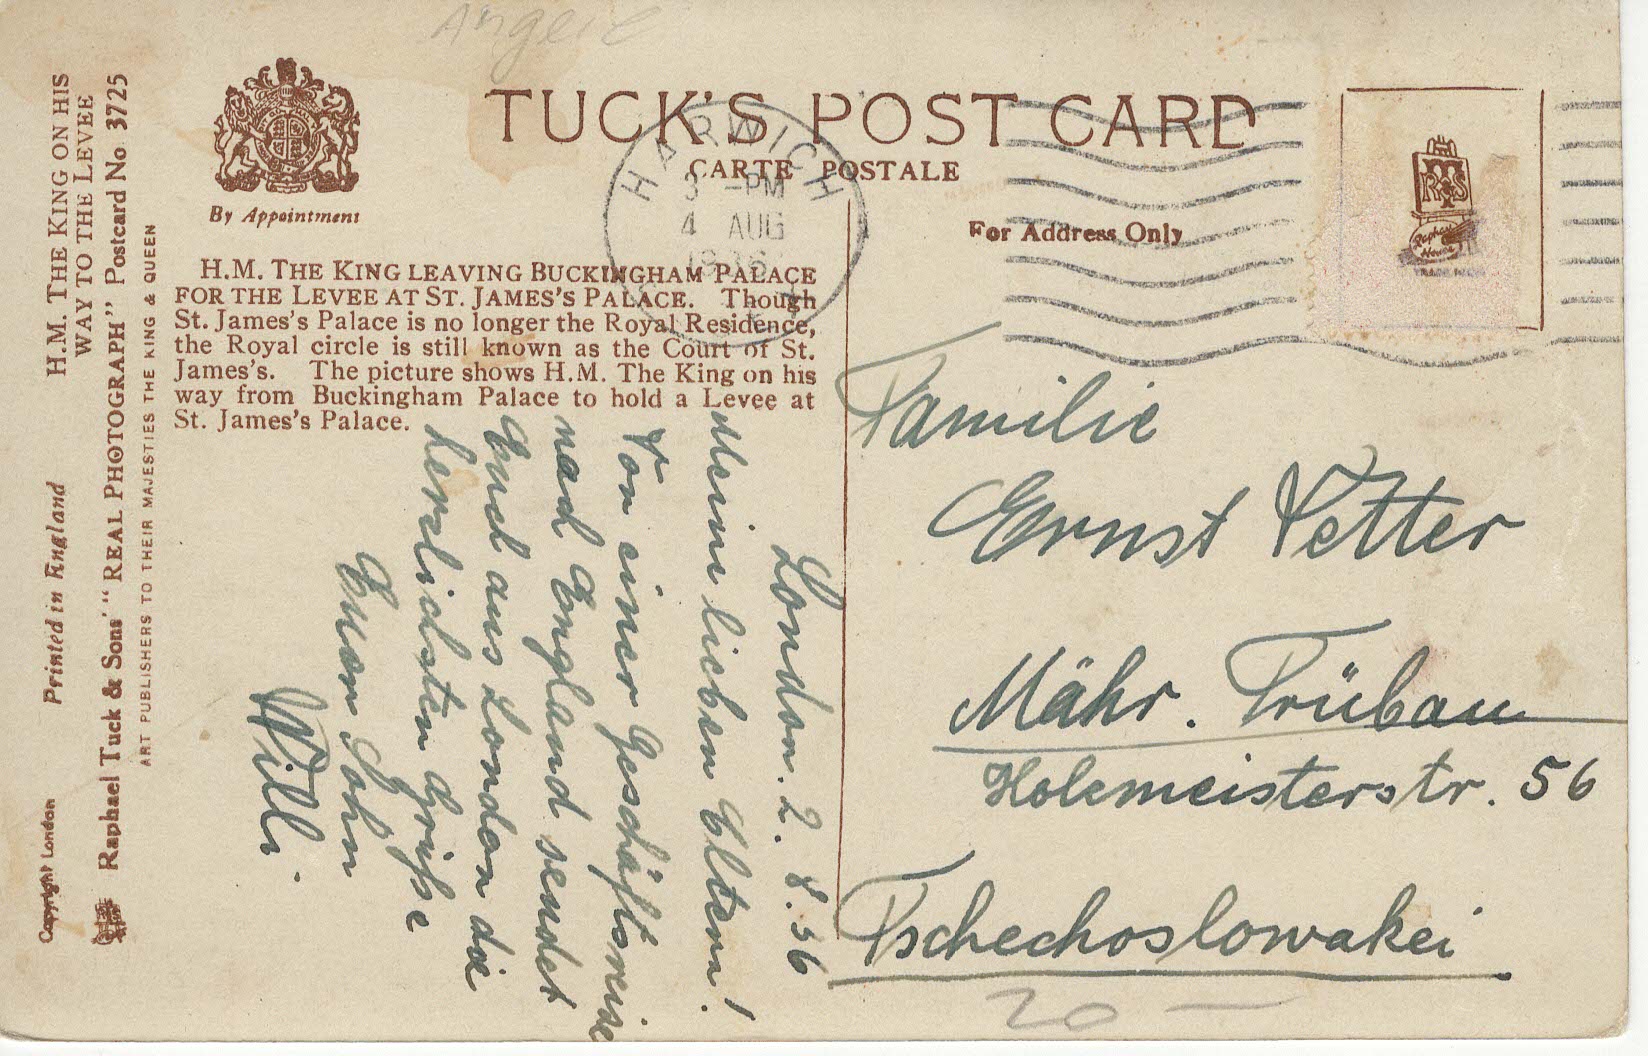 Angere
TUCK'S POST CARD
CARTE POSTALE
By Appointment
For Address Only
HARWICH
3 -PM
4 AUG
1936
H.M. THE KING LEAVING BUCKINGHAM PALACE
FOR THE LEVEE AT ST. JAMES'S PALACE. Though
St. James's Palace is no longer the Royal Residence,
the Royal circle is still known as the Court of St.
James's. The picture shows H.M. The King on his
way from Buckingham Palace to hold a Levee at
St. James's Palace.
H.M. THE KING ON HIS
WAY TO THE LEVEE
Printed in England
Copyright London
Raphael Tuck & Sons' "REAL PHOTOGRAPH" Postcard No 3725
ART PUBLISHERS TO THEIR MAJESTIES THE KING & QUEEN
R T & S
Raphael
House
TRADE MARK
London. 2. 8. 36
Meine lieben Eltern!
Von einer Geschäftsreise
nach England sendet
Euch aus London die
herzlichsten Grüße
Euer Sohn
Willi.
Familie
Ernst Vetter
Mähr. Trübau
Holzmeisterstr. 56
Tschechoslowakei
20 —